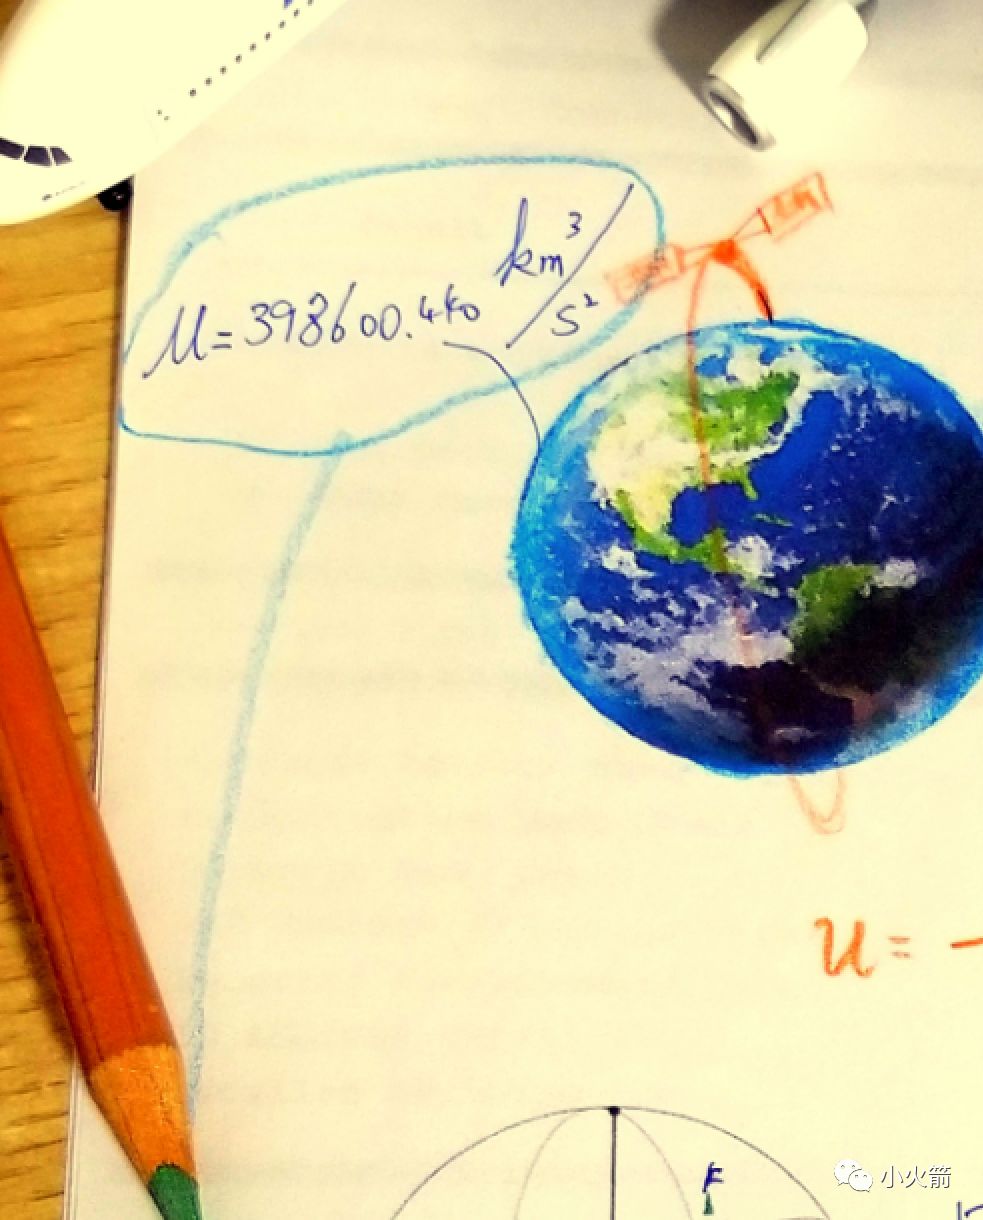 μ=398600.440 km³/s²
u = -
F
小火箭